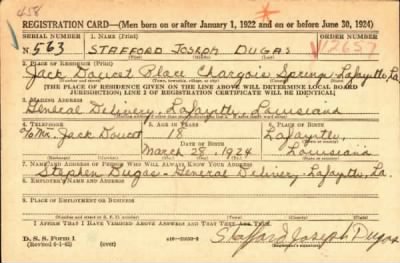 458
REGISTRATION CARD—(Men born on or after January 1, 1922 and on or before June 30, 1924)
SERIAL NUMBER 1. NAME (Print) ORDER NUMBER
N 563 STAFFORD JOSEPH DUGAS 12657
(First) (Middle) (Last)
2. PLACE OF RESIDENCE (Print)
Jack Doucet Place Chargois Springs Lafayette, La.
(Number and street) (Town, township, village, or city) (County) (State)
[THE PLACE OF RESIDENCE GIVEN ON THE LINE ABOVE WILL DETERMINE LOCAL BOARD
JURISDICTION; LINE 2 OF REGISTRATION CERTIFICATE WILL BE IDENTICAL]
3. MAILING ADDRESS
General Delivery, Lafayette Louisiana
4. TELEPHONE 5. AGE IN YEARS 6. PLACE OF BIRTH
c/o Mr. Jack Doucet 18 Lafayette,
DATE OF BIRTH
March 28, 1924 Louisiana
(Exchange) (Number) (Mo.) (Day) (Yr.) (State or country)
7. NAME AND ADDRESS OF PERSON WHO WILL ALWAYS KNOW YOUR ADDRESS
Stephen Dugas - General Delivery, Lafayette, La.
8. EMPLOYER'S NAME AND ADDRESS
9. PLACE OF EMPLOYMENT OR BUSINESS
(Number and street or R. F. D. number) (Town) (County) (State)
I AFFIRM THAT I HAVE VERIFIED ABOVE ANSWERS AND THAT THEY ARE TRUE.
D. S. S. Form 1
(Revised 6-1-42) (over) Stafford Joseph Dugas